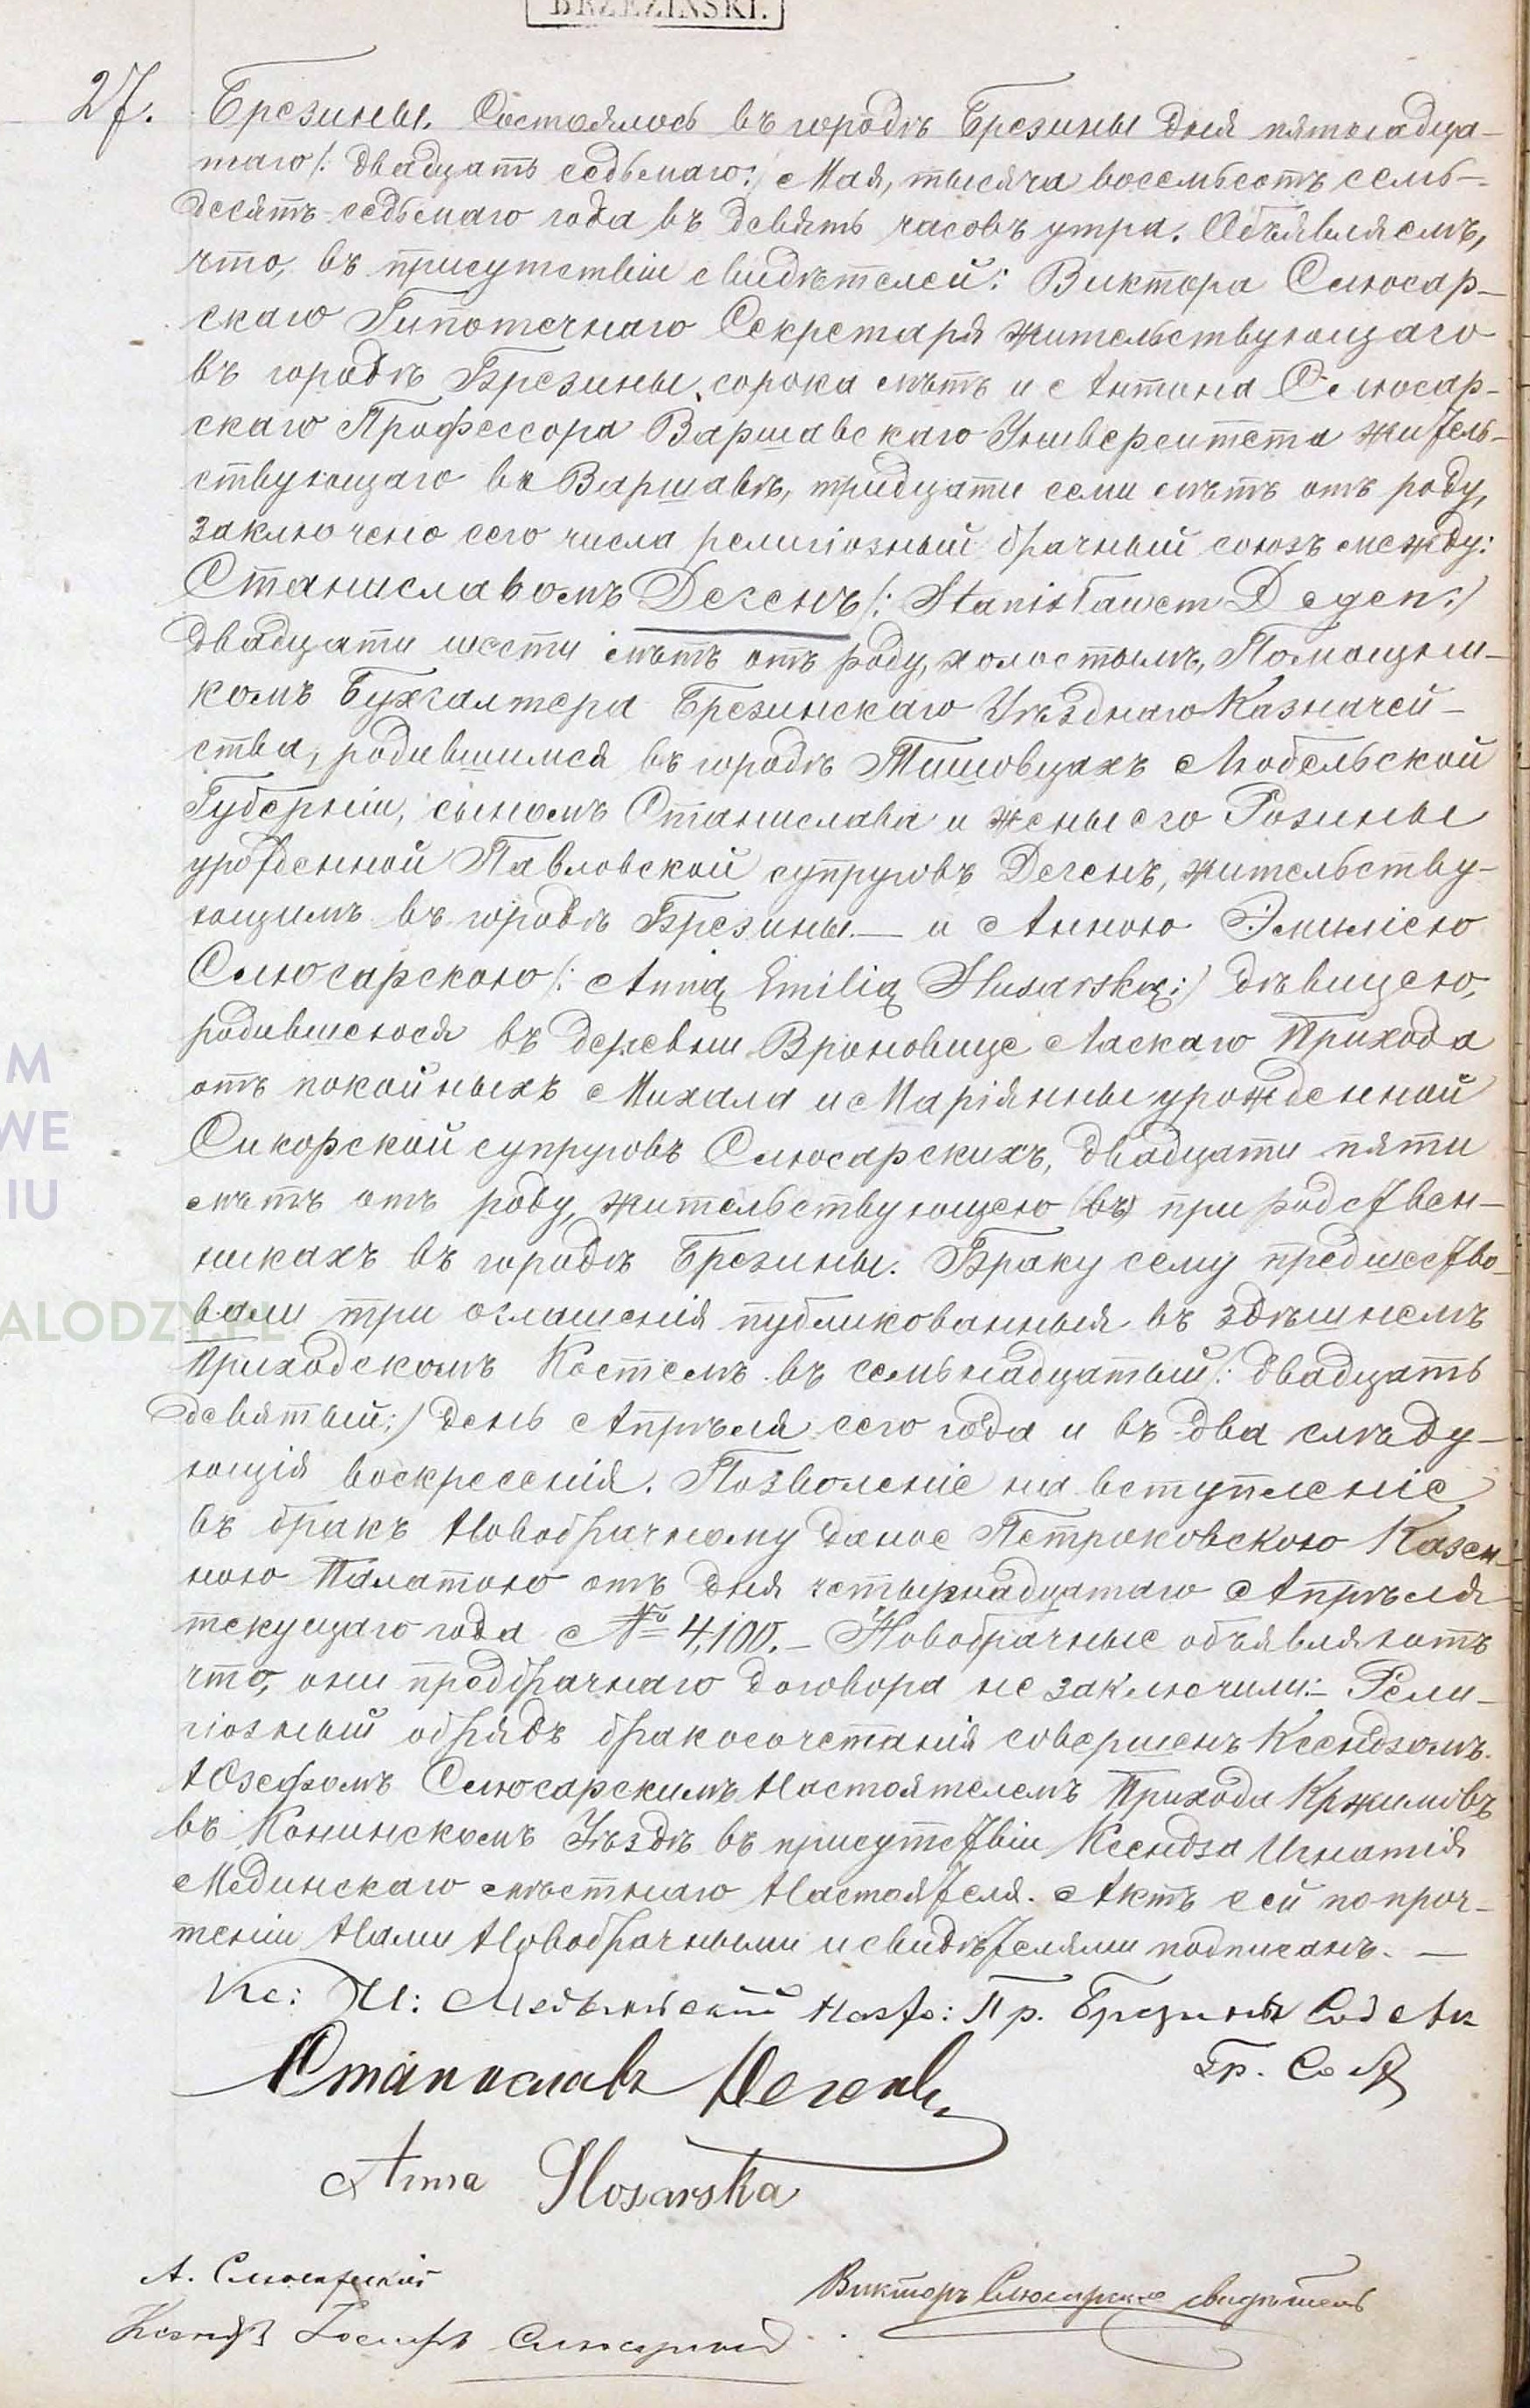 BRZEZIŃSKI.
27. Брезины. Состоялось въ городѣ Брезины дня пятьнадца-
таго /: двадцать седьмаго :/ Мая, тысяча восемьсотъ семь-
десятъ седьмаго года въ девять часовъ утра. Объявляемъ,
что, въ присутствіи свидѣтелей: Виктора Слюсар-
скаго Гипотечнаго Секретаря жительствующаго
въ городѣ Брезины, сорока лѣтъ и Антона Слюсар-
скаго Профессора Варшавскаго Университета житель-
ствующаго въ Варшавѣ, тридцати семи лѣтъ отъ роду,
заключено сего числа религіозный брачный союзъ между:
Станиславомъ Дегенъ /: Stanisławem Degen :/
двадцати шести лѣтъ отъ роду, холостымъ, Помощни-
комъ Бухгалтера Брезинскаго Уѣзднаго Казначей-
ства, родившимся въ городѣ Тишовцахъ Любельской
Губерніи, сыномъ Станислава и жены его Розины
урожденной Павловской супруговъ Дегенъ, жительству-
ющимъ въ городѣ Брезины — и Анною Эмиліею
Слюсарскою /: Anną Emilią Slusarską :/ дѣвицею,
родившеюся въ деревни Вроновице Ласкаго Прихода
отъ покойныхъ Михала и Маріянны урожденной
Сикорской супруговъ Слюсарскихъ, двадцати пяти
лѣтъ отъ роду, жительствующею (въ) при родствен-
никахъ въ городѣ Брезины. Браку сему предшество-
вали три оглашенія публикованныя въ здѣшнемъ
Приходскомъ Костелѣ въ семьнадцатый /: двадцать
девятый :/ день Апрѣля сего года и въ два слѣду-
ющія воскресенія. Позволеніе на вступленіе
въ бракъ Новобрачному даное Петроковскою Казен-
ною Палатою отъ дня четырнадцатаго Апрѣля
текущаго года № 4,100. — Новобрачные объявляютъ
что, они предбрачнаго договора не заключили. — Рели-
гіозный обрядъ бракосочетанія совершенъ Ксендзомъ
Юзефомъ Слюсарскимъ Настоятелемъ Прихода Кржимовъ
въ Конинскомъ Уѣздѣ въ присутствіи Ксендза Игнатія
Мединскаго мѣстнаго Настоятеля. Актъ сей по проч-
теніи Нами Новобрачными и свидѣтелями подписанъ. —
Кс: И: Медынскій Наст: Пр. Брезины Сод Ак
Гр. Сост
Станиславъ Дегенъ
Anna Slosarska
А. Слюсарскій
Викторъ Слюсарскій свидѣтель
Ксендзъ Іосифъ Слюсарскій
M
WE
IU
ALODZY.PL